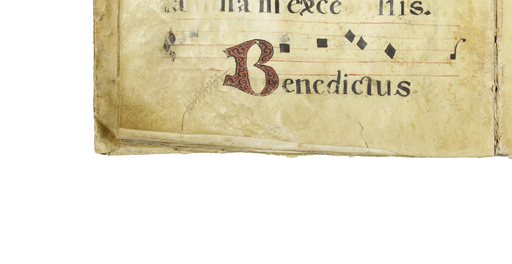 na in exce his.
Benedictus